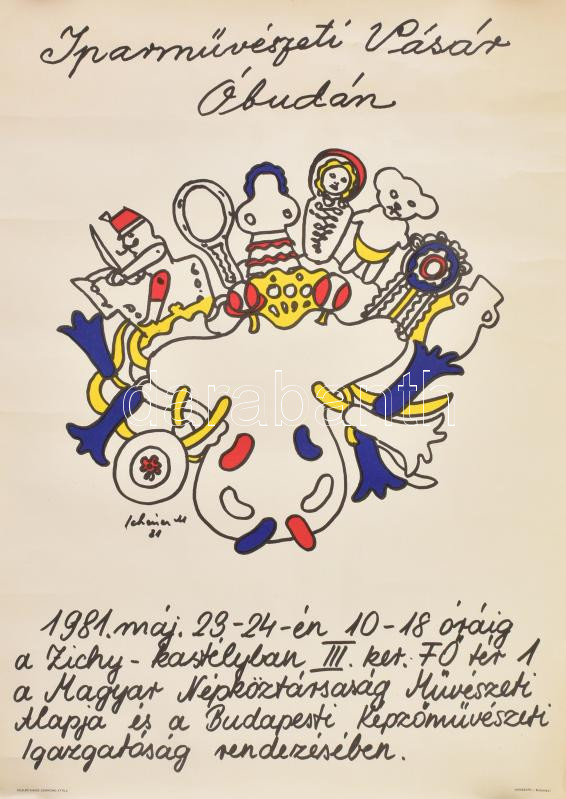 Iparművészeti Vásár
Óbudán
darabanth
Scheiner M
81
1981. máj. 23-24-én 10-18 óráig
a Zichy-kastélyban III. ker. FŐ tér 1
a Magyar Népköztársaság Művészeti
Alapja és a Budapesti Képzőművészeti
Igazgatóság rendezésében.